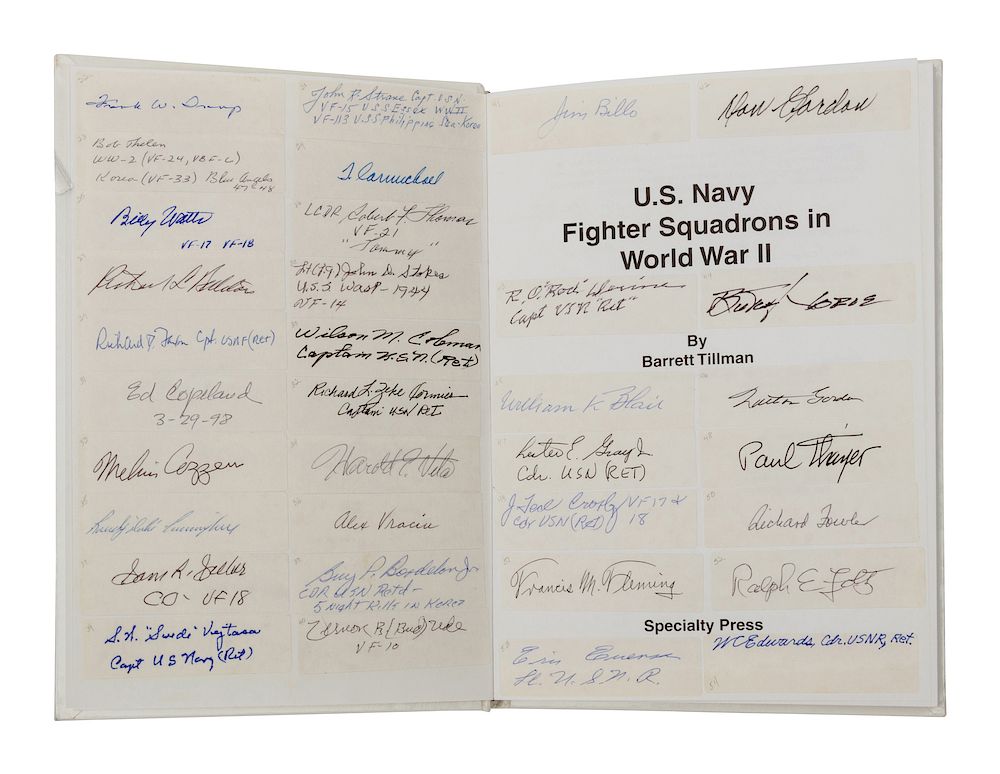 Frank W.
John R. Strane Capt USN
VF-15 USS Essex WWII
VF-113 USS Philippine Sea-Korea
Bob Thelen
WW-2 (VF-24, VBF-6)
Korea (VF-33) Blue Angels
47-48
J Carmichael
Billy Watts
VF-17 VF-18
LCDR, Robert F. Thomas
VF-21
"Tommy"
Richard L.
Lt (j.g.) John D. Stokes
U.S.S Wasp - 1944
VF-14
Richard Cpt. USNR (RET)
Wilson M. Coleman
Captain U.S.N. (Ret)
Ed Copeland
3-29-98
Richard L. Zeke Cormier
Captain USN RET
Melvin Cozzens
Harold E. Vita
Alex Vraciu
Sam L. Silber
CO - VF 18
Guy P. Bordelon Jr
CDR USN Retd -
5 Night Kills in Korea
S.W. "Swede" Vejtasa
Capt US Navy (Ret)
Vernon R (Bud) Ude
VF-10
Jim Billo
Don Gordon
U.S. Navy
Fighter Squadrons in
World War II
R. O. "Rock" Devine
Capt USN "Ret"
By
Barrett Tillman
William K Blair
Lester E. Gray Jr.
Cdr. USN (RET)
Paul Thayer
J Teal Crosby VF17 &
Cdr USN (Ret) 18
Richard Fowler
Francis M. Fleming
Ralph E Foltz
Specialty Press
WC Edwards, Cdr. USNR, Ret.
Eric Evenson
Lt. U.S.N.R.